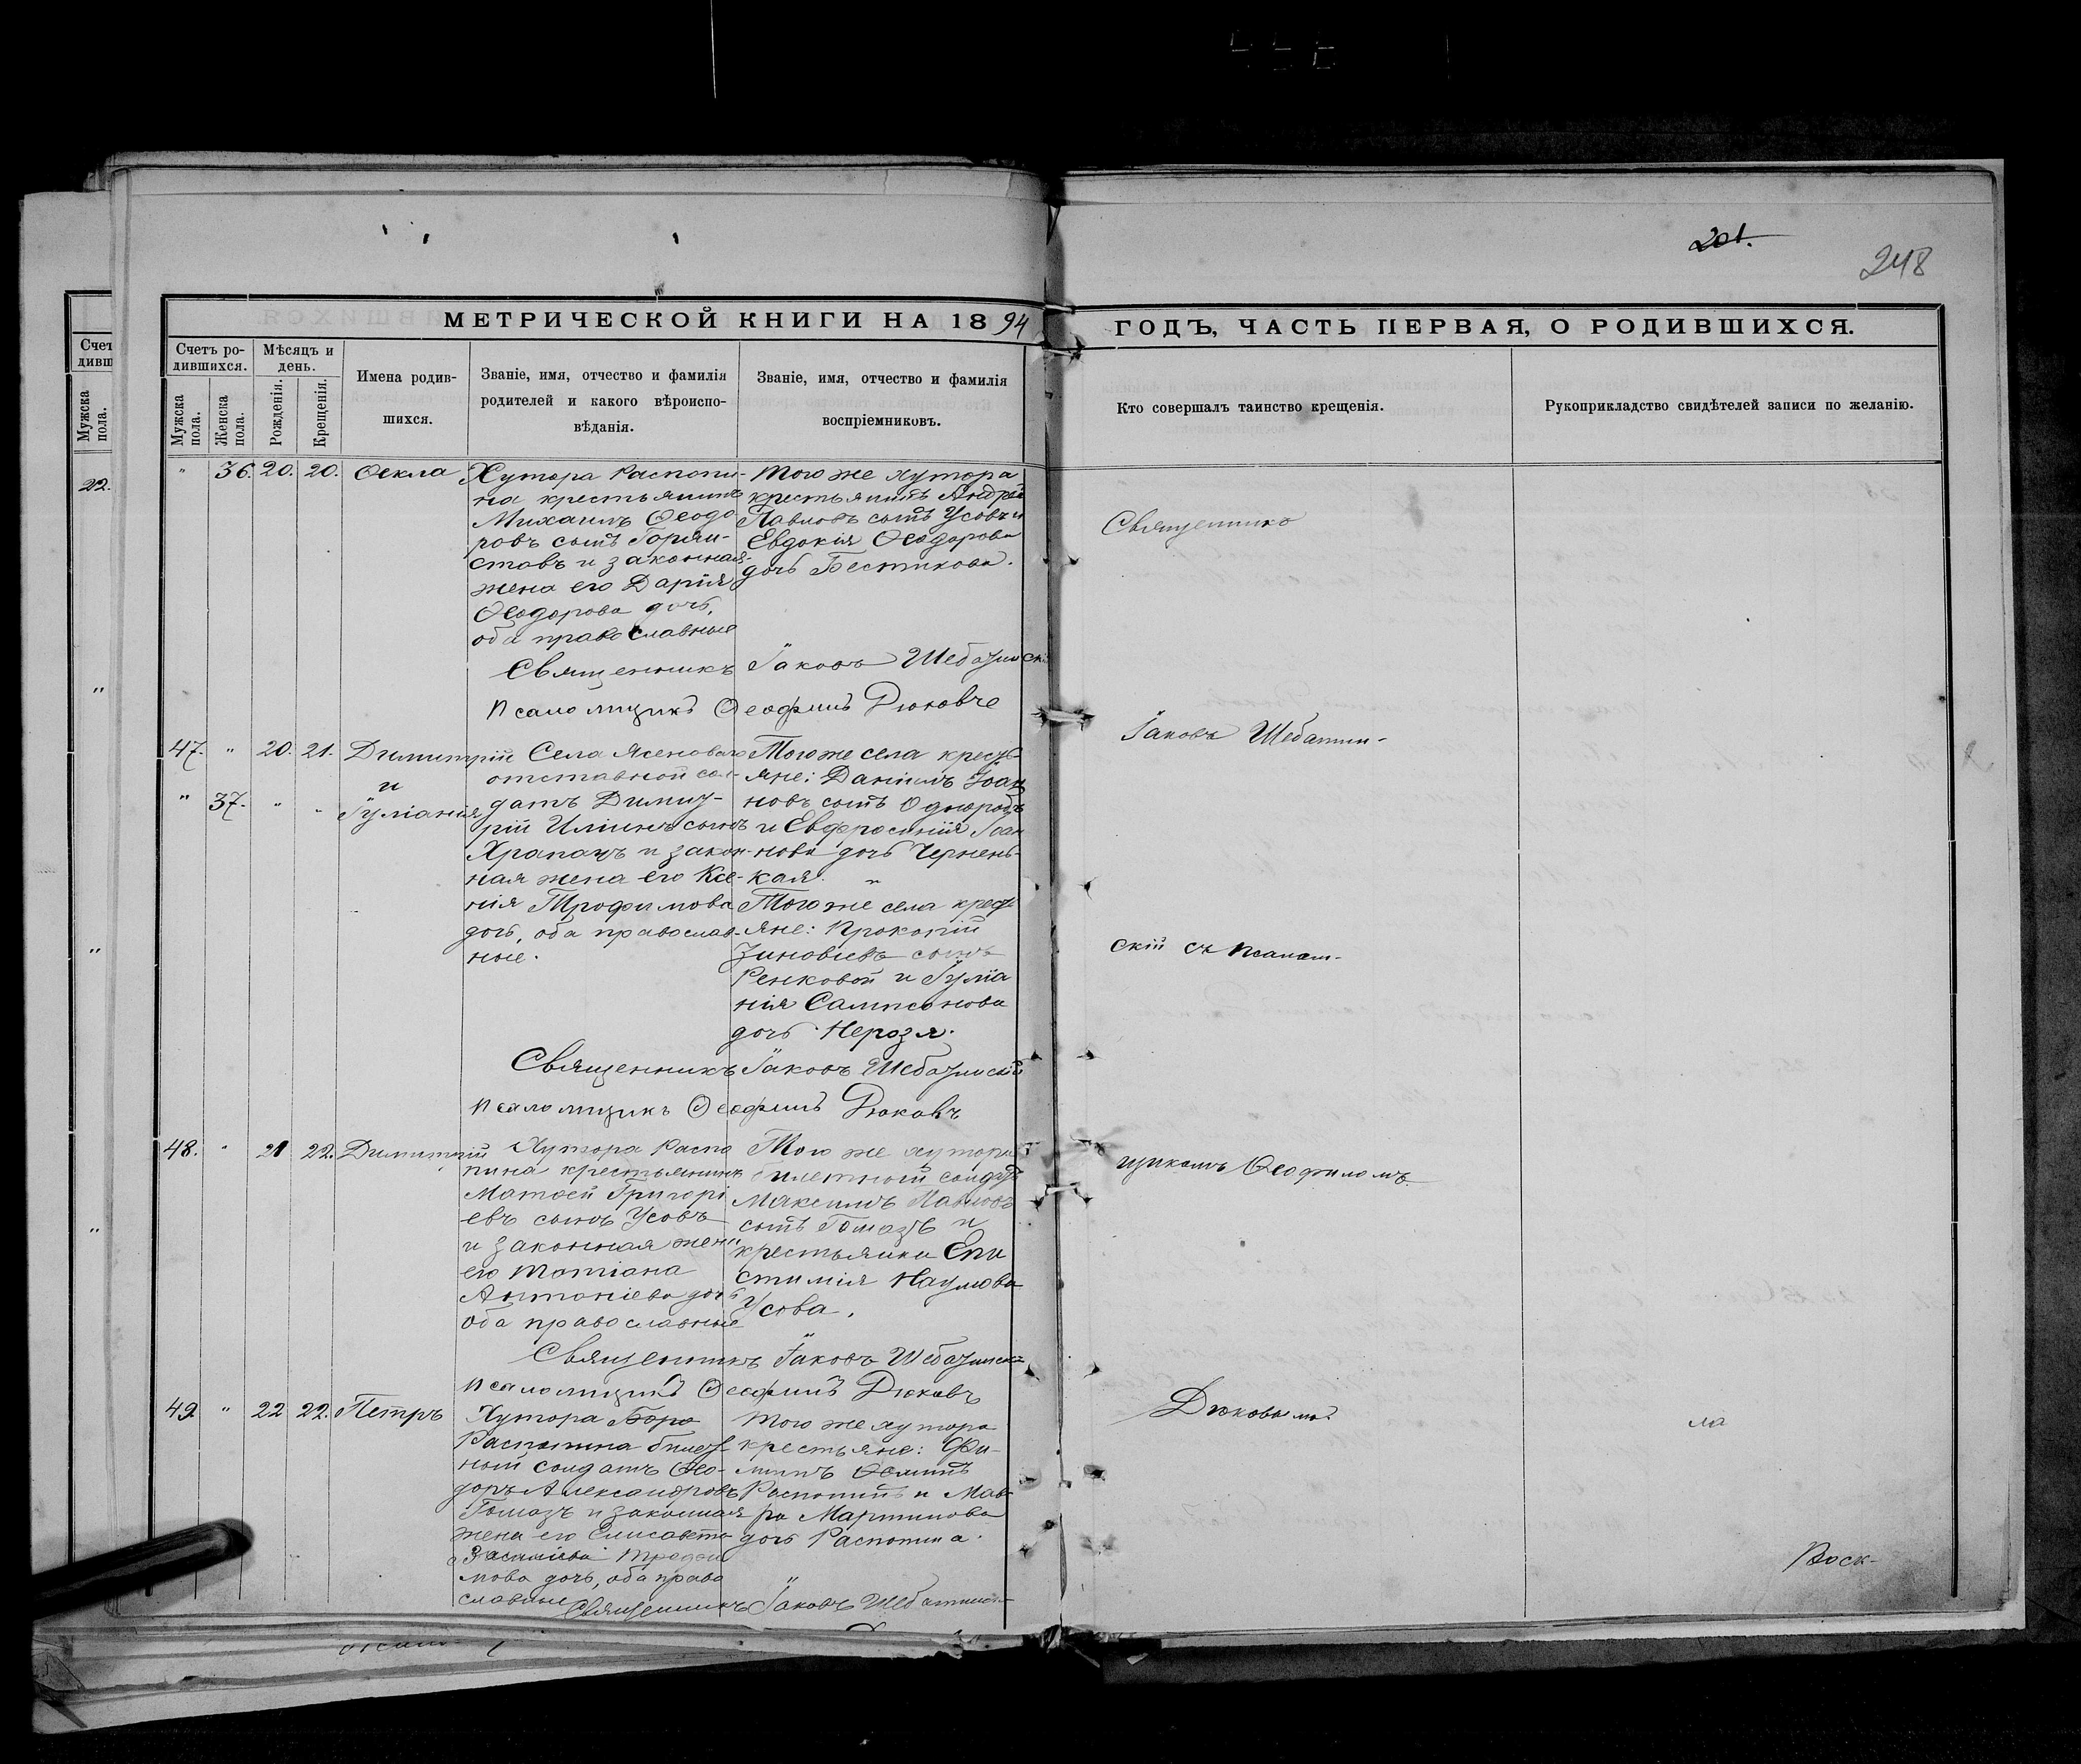 201.
248
МЕТРИЧЕСКОЙ КНИГИ НА 1894
ГОДЪ, ЧАСТЬ ПЕРВАЯ, О РОДИВШИХСЯ.
Счетъ ро-
дившихся.
Мужска пола.
Женска пола.
Мѣсяцъ и
день.
Рожденія.
Крещенія.
Имена родив-
шихся.
Званіе, имя, отчество и фамилія
родителей и какого вѣроиспо-
вѣданія.
Званіе, имя, отчество и фамилія
воспріемниковъ.
Кто совершалъ таинство крещенія.
Рукоприкладство свидѣтелей записи по желанію.
22.
" 36. 20. 20. Ѳекла
Хутора Распопи-
на крестьянинъ
Михаилъ Ѳеодо
ровъ сынъ
ставъ и законная
жена его Дарія
Ѳеодорова дочь,
оба православные
Того же хутора
крестьянинъ Андрей
Павловъ сынъ Усовъ и
Евдокія Ѳеодорова
дочь Бестикова.
Священникъ Іаковъ Шебатинскі
Псаломщикъ Ѳеофилъ Дюковъ
47. " 20. 21. Димитрій
и
" 37. " " Іуліанія
Села Ясеноваго
отставной сол-
датъ Димит-
рій Иліинъ сынъ
Храпачъ и закон-
ная жена его Ксе-
нія Трофимова
дочь, оба православ-
ные.
Того же села кресть
яне: Даніилъ Іоан
новъ сынъ
и Евфросинія Іоан
нова дочь Чернень-
кая. "
Того же села кресть
яне: Прокопій
Зиновіевъ сынъ
Ренковой и Іуліа
нія Сампсонова
дочь Нерозя.
Священникъ Іаковъ Шебатинскій
Псаломщикъ Ѳеофилъ Дюковъ
48. " 21 22. Димитрій
Хутора Распо
пина крестьянинъ
Матѳей Григорі
евъ сынъ Усовъ
и законная жена
его Татіана
Антоніева дочь
оба православные
Того же хутора
билетный солдатъ
Максимъ Павловъ
сынъ Гомазъ и
крестьянка Епи
стимія Наумова
Усова.
Священникъ Іаковъ Шебатинскі
Псаломщикъ Ѳеофилъ Дюковъ
49. " 22 22. Петръ
Хутора
Распопина билет
ный солдатъ Ѳео-
доръ Александровъ
Гомазъ и законная
жена его Елисавета
Трофи
мова дочь, оба право
славные
Того же хутора
крестьяне: Фи-
липпъ
Распопинъ и Мав-
ра Мартинова
дочь Распопина.
Священникъ Іаковъ Шебатинскі
Священнико
Іаковъ Шебатин-
скій съ псалом-
щикомъ Ѳеофиломъ
Дюковымъ.
ла
Воск-